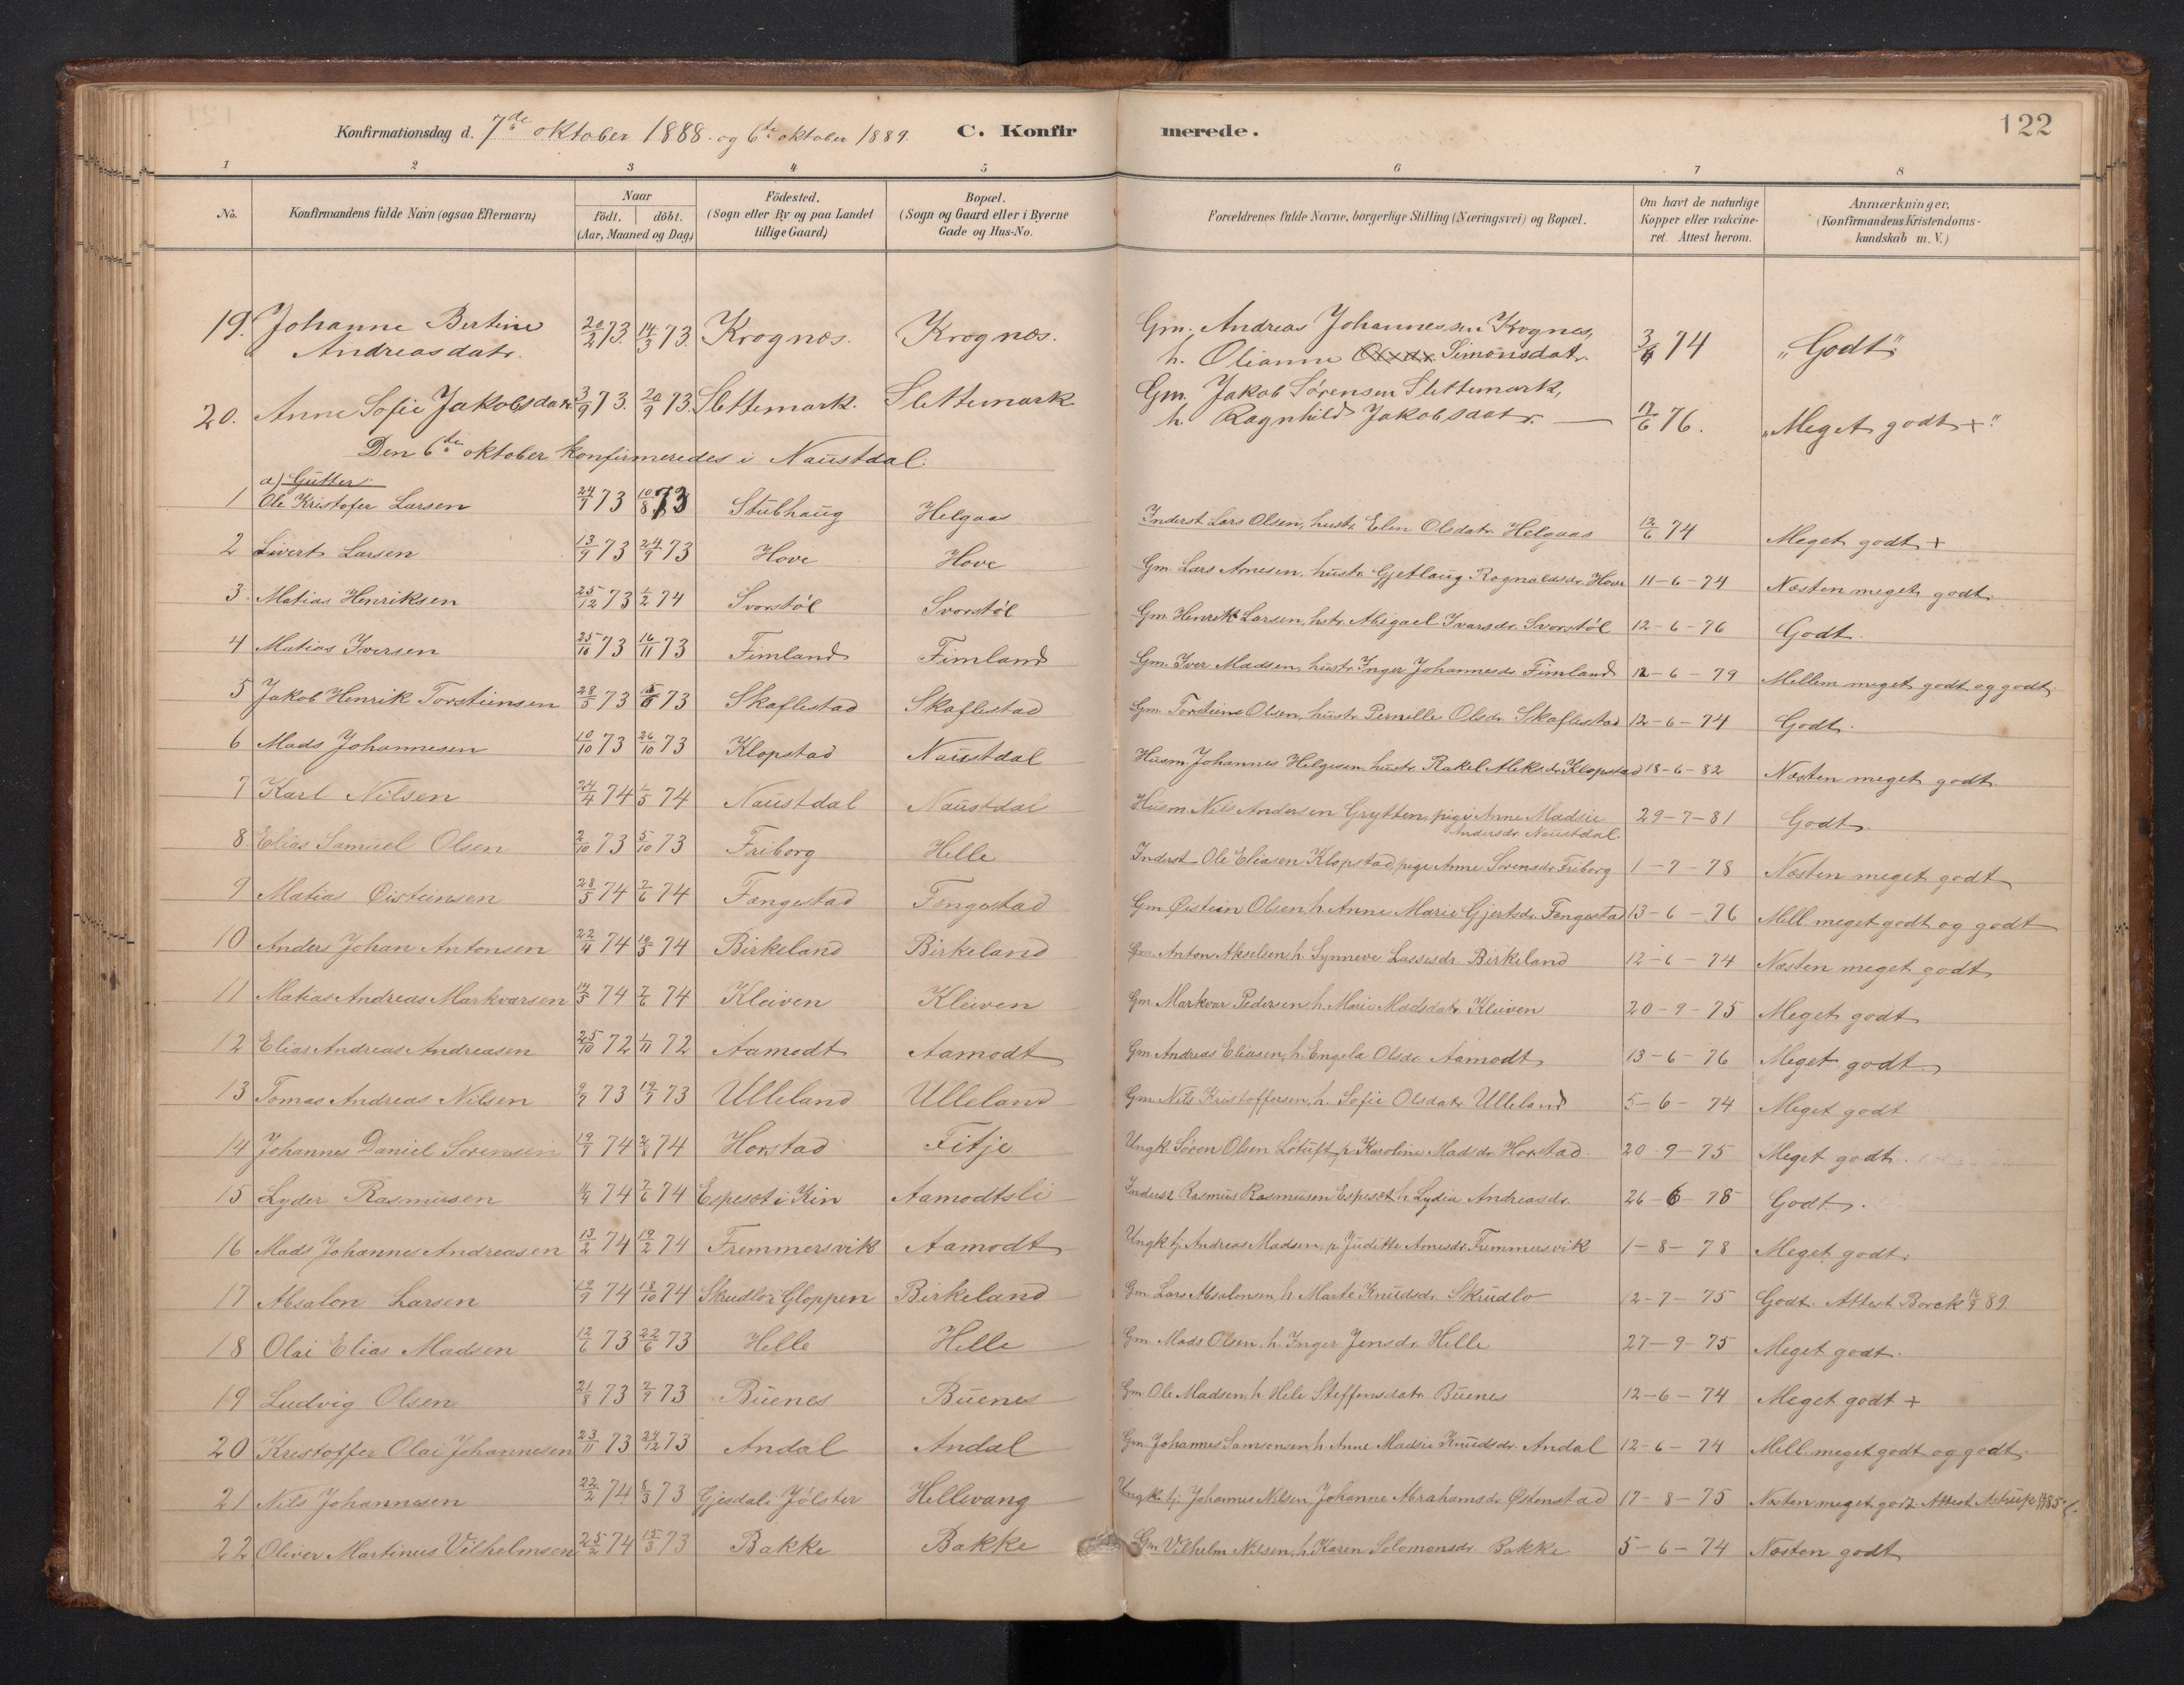 Konfirmationsdag d. 7de oktober 1888. og 6te oktober 1889. C. Konfirmerede. 122
1 2 3 4 5 6 7 8
No. Konfirmandens fulde Navn (ogsaa Efternavn) Naar födt. döbt. (Aar, Maaned og Dag) Födested. (Sogn eller By og paa Landet tillige Gaard) Bopæl. (Sogn og Gaard eller i Byerne Gade og Hus-No. Forældrenes fulde Navne, borgerlige Stilling (Næringsvei) og Bopæl. Om havt de naturlige Kopper eller vakcineret. Attest herom. Anmærkninger, (Konfirmandens Kristendomskundskab m. V.)
19. Johanne Bertine Andreasdatr. 20/2 73. 14/3 73. Krognæs. Krognæs. Gm. Andreas Johannessen Krognes, h. Olianne Simonsdatr. 3/6 74 "Godt"
20. Anne Sofie Jakobsdatr. 3/9 73. 20/9 73. Slettemark. Slettemark Gm. Jakob Sørensen Slettemark, h. Ragnhild Jakobsdatr. — 12/6 76. "Meget godt +"
Den 6te oktober konfirmeredes i Naustdal:
a) Gutter:
1 Ole Kristofer Larsen 24/7 73 10/8 73 Stubhaug Helgaas Inderst Lars Olsen, hustr. Elen Olsdatr. Helgaas 12/6 74 Meget godt +
2 Sivert Larsen 13/9 73 24/9 73 Hove Hove Gm. Lars Arnesen, hustr. Gjetlaug Ragnaldsdr. Hove 11-6-74 Næsten meget godt.
3. Matias Henriksen 25/12 73 1/2 74 Svorstøl Svorstøl Gm. Henrik Larsen, hstr. Abigael Ivarsdr. Svorstøl 12-6-76 Godt.
4 Matias Iversen 25/10 73 16/11 73 Fimland Fimland Gm. Iver Madsen, hustr. Inger Johannesdr. Fimland 12-6-79 Mellem meget godt og godt.
5 Jakob Henrik Torsteinsen 28/5 73 15/6 73 Skaflestad Skaflestad Gm. Torstein Olsen, hustr. Pernille Olsdr. Skaflestad 12-6-74 Godt.
6 Mads Johannesen 10/10 73 26/10 73 Klopstad Naustdal Husm. Johannes Helgesen, hustr. Rakel Aleksdr. Klopstad 18-6-82 Næsten meget godt.
7 Karl Nilsen 24/4 74 1/5 74 Naustdal Naustdal Husm. Nils Andersen Grytten, pige Anne Madsie Andersdr. Naustdal. 29-7-81 Godt.
8. Elias Samuel Olsen 2/10 73 5/10 73 Friborg Helle Inderst Ole Eliasen Klopstad, pige Anne Sørensdr. Friborg 1-7-78 Næsten meget godt
9 Matias Øisteinsen 28/5 74 7/6 74 Fængestad Fængestad Gm. Øistein Olsen h. Anne Marie Gjertsdr. Fængestad 13-6-76 Mell. meget godt og godt
10 Anders Johan Antonsen 22/4 74 10/5 74 Birkeland Birkeland Gm. Anton Akselsen, h. Synneve Lassesdr. Birkeland 12-6-74 Næsten meget godt
11 Matias Andreas Markvarsen 14/5 74 7/6 74 Kleiven Kleiven Gm. Markvar Pedersen, h. Marie Madsdatr. Kleiven 20-9-75 Meget godt
12 Elias Andreas Andreasen 25/10 72 1/11 72 Aamodt Aamodt Gm. Andreas Eliasen, h. Engela Olsdr. Aamodt 13-6-76 Meget godt.
13 Tomas Andreas Nilsen 9/7 73 19/7 73 Ulleland Ulleland Gm. Nils Kristoffersen, h. Sofie Olsdatr. Ulleland 5-6-74 Meget godt
14 Johannes Daniel Sørensen 19/7 74 2/8 74 Horstad Fitje Ungk. Søren Olsen Løtuft, p. Karoline Madsdr. Horstad. 20-9-75 Meget godt.
15 Lyder Rasmusen 74 7/6 74 Espeset i Kin Aamodtsli Inderst Rasmus Rasmusen Espeset h. Lydia Andreasdr. 26-6-78 Godt.
16 Mads Johannes Andreasen 13/2 74 19/2 74 Fremmersvik Aamodt Ungk. tj. Andreas Madsen, p. Juditte Arnesdr. Fremmersvik 1-8-78 Meget godt.
17 Absalon Larsen 74 18/10 74 Skrudlo i Gloppen Birkeland Gm. Lars Absalonsen, h. Marte Knudsdr. Skrudlo 12-7-75 Godt. Attest Borck 89.
18 Olai Elias Madsen 12/6 73 22/6 73 Helle Helle Gm. Mads Olsen, h. Inger Jensdr. Helle 27-9-75 Meget godt.
19 Ludvig Olsen 21/8 73 7/9 73 Buenes Buenes Gm. Ole Madsen, h. Hele Steffensdatr. Buenes 12-6-74 Meget godt +
20 Kristoffer Olai Johannesen 23/11 73 24/12 73 Andal Andal Gm. Johannes Samsonsen h. Anne Madsie Knudsdr. Andal 12-6-74 Mell. meget godt og godt.
21 Nils Johannesen 22/2 74 8/3 73 Gjesdal i Jølster Hellevang Ungk. tj. Johannes Nilsen, Johanne Abrahamsdr. Østenstad 17-8-75 Næsten meget godt. Attest Astrup 85
22 Oliver Martinus Vilhelmsen 25/2 74 15/3 73 Bakke Bakke Gm. Vilhelm Nilsen, h. Karen Solomonsdr. Bakke 5-6-74 Næsten godt